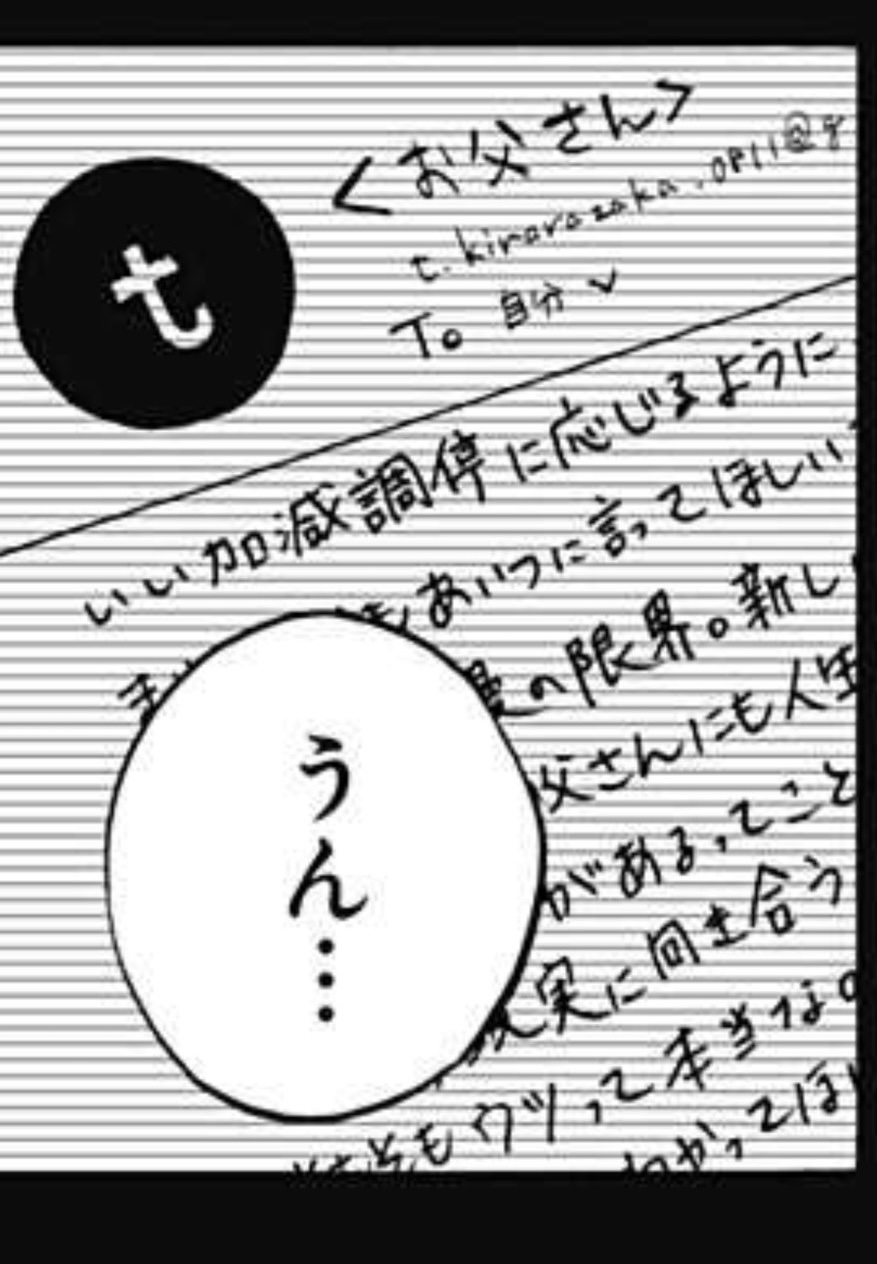 t
<お父さん>
t.kirarazaka.0811@g
To 自分
いい加減調停に応じるように
もあいつに言ってほしい
の限界。新し
父さんにも人生
があるってこと
実に向き合う
そもそもウツって本当なの
わかってほ
うん…